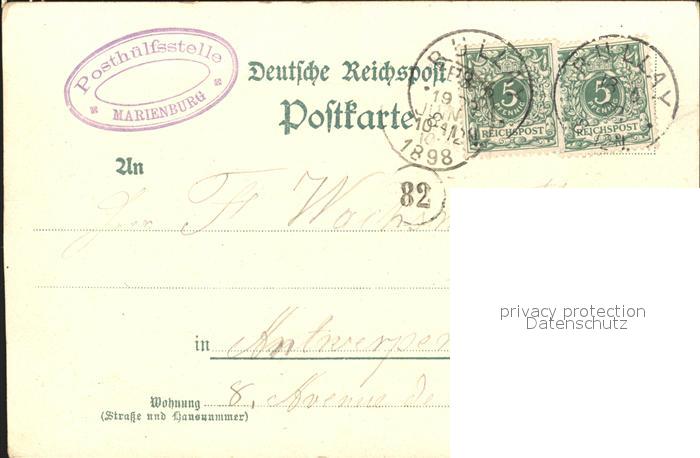 Posthülfsstelle
MARIENBURG
Deutsche Reichspost
Postkarte
BULLAY
BULLAY
19
JUN
1898
5
5
REICHSPOST
REICHSPOST
82
An
F Wachs
privacy protection
Datenschutz
in Antwerpen
Wohnung 8, Avenue de
(Straße und Hausnummer)